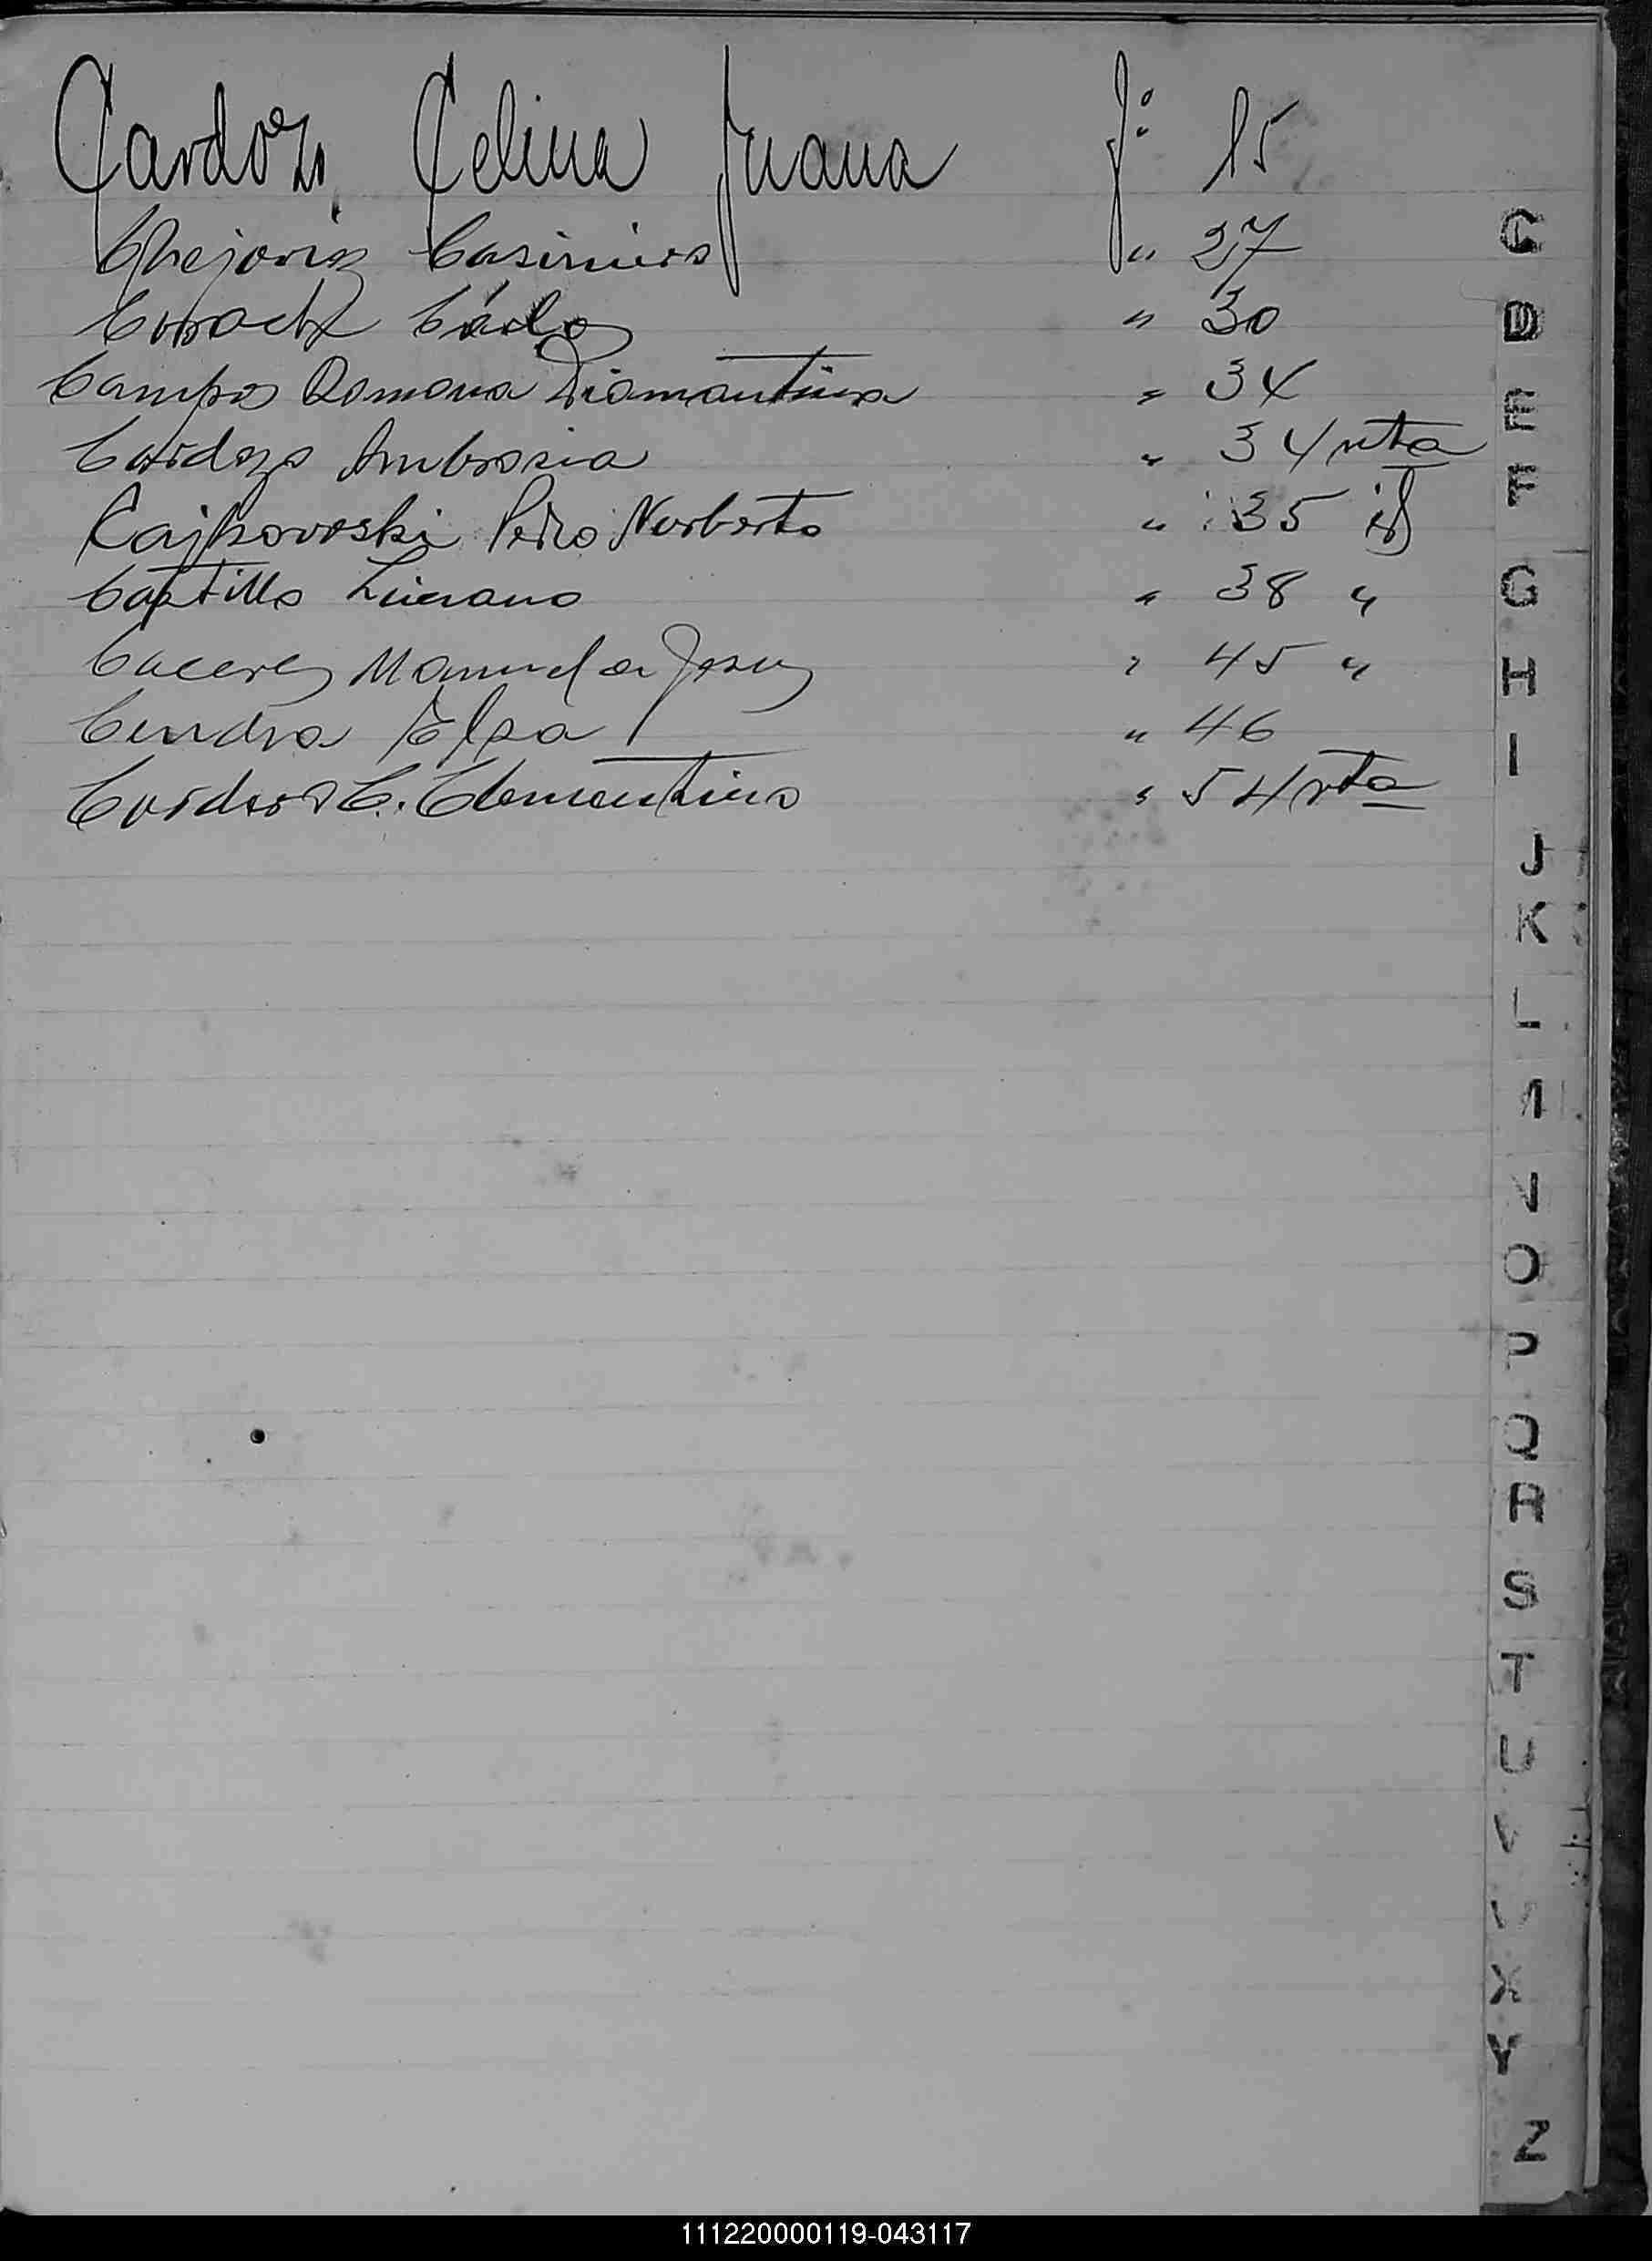 Cardozo, Celina Juana f: 15
Casimiro " 27
Carlos " 30
Campos Romona Diamantina " 34
Cardozo Ambrosia " 34 vta
Cajkovoski Pedro Norberto " 35 id
Castillo Luciano " 38 "
Caceres Manuel de Jesus " 45 "
Cendra Elsa " 46
C. Clementina " 54 vta
C
D
E
F
G
H
I
J
K
L
M
N
O
P
Q
R
S
T
U
V
W
X
Y
Z
111220000119-043117